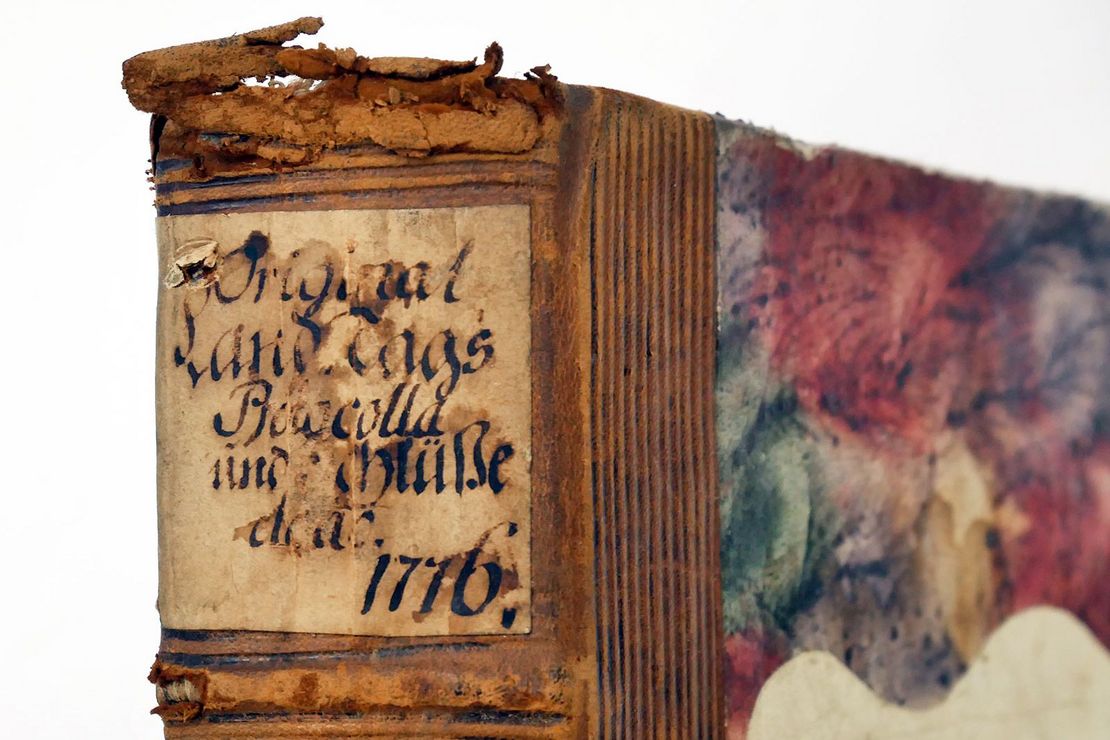 Original
Land Tags
Protocolla
und Schlüße
de ao.
1776.